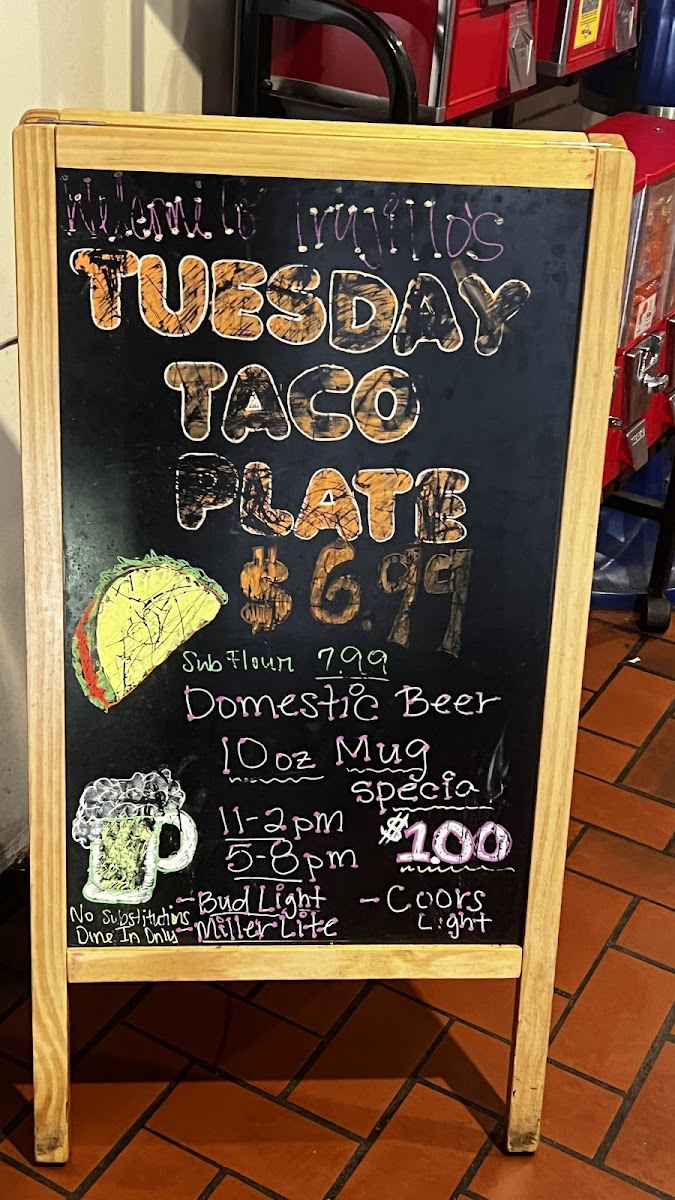 Welcome to Trujillo's
TUESDAY
TACO
PLATE
$6.99
Sub Flour 7.99
Domestic Beer
10oz Mug
specia
11-2pm $1.00
5-8pm
-Bud Light -Coors
No Substitutions -Miller Lite Light
Dine In Only